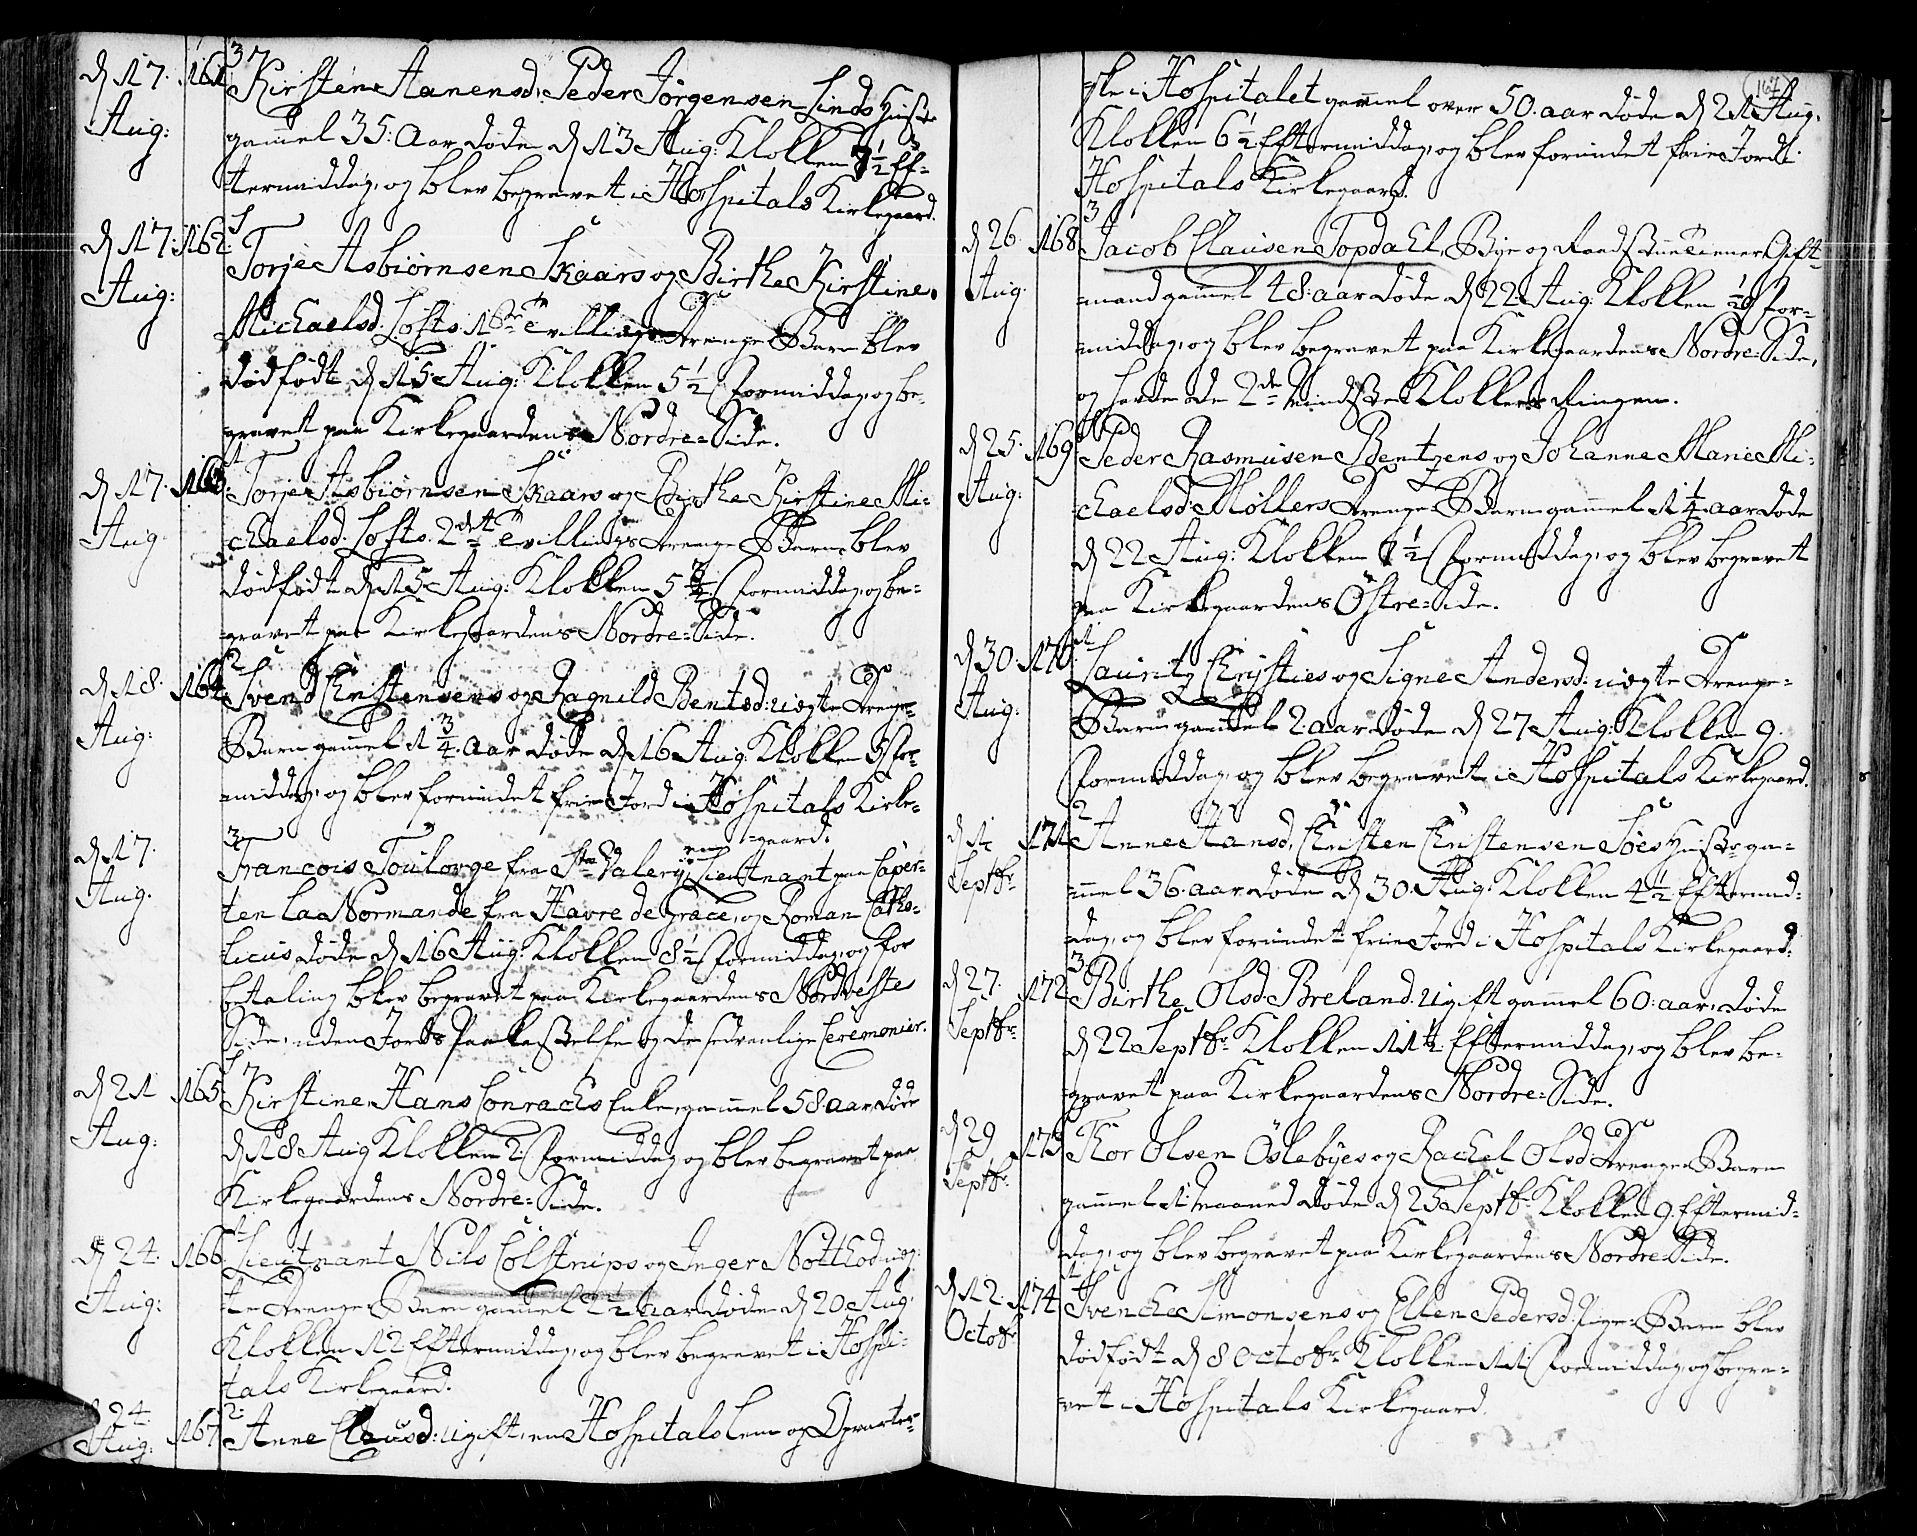 d 17. 161. 3
Aug: Kirstine Aanensd. Peder Jörgensen Linds Hustr
gammel 35: Aar döde d 13 Aug: Klokken 7½ Ef-
termiddag, og blev begravet i Hospitals Kirkegaard.
d 17: 162. 1
Aug: Torje Asbiörnsen Skaars og Birthe Kirstine
Michaelsd. Lofts 1ste Tvillings Drenge Barn blev
dödfödt d 15 Aug: Klokken 5½ Formiddag, og be-
gravet paa Kirkegaardens Nordre-Side.
d 17. 163. 1
Aug. Torje Asbiörnsen Skaars og Birthe Kirstine Mi-
chaelsd. Lofts. 2det Tvillings Drenge Barn blev
dödfödt d 15 Aug: Klokken 5 Formiddag, og be-
gravet paa Kirkegaardens Nordre-Side.
d 18. 164. 2
Aug: Svend Christensens og Ragnild Bentsd: uægte Drenge-
Barn gamel 1¾ aar döde d 16 Aug. Klokken 5 For-
middag, og blev forundet frie Jord i Hospitals Kirke-
gaard.
d 17. 3
Aug. Francois Toulorge fra St Valery, Lieutnant paa Caper-
ten La Normande fra Havre de Grace, og Roman Catho-
licus, döde d 16 Aug: Klokken 8½ Formiddag, og for
betaling blev begravet paa Kirkegaardens Nordveste
Side, uden Jords Paakastelse og de sedvanlige Ceremonier.
d 21 165.
Aug: Kirstine Hans Conrachs Enke, gamel 58 aar döde
d 18 Aug Klokken 2. Formiddag og blev begravet paa
Kirkegaardens Nordre-Side.
d 24. 166. 1
Aug: Lieutnant Nils Colstrups og Inger Notthod uæg-
te Drenge Barn gamel 2½ aar döde d 20 Aug.
Klokken 12 Eftermiddag, og blev begravet i Hospi-
tals Kirkegaard.
24. 167 2
Aug: Anne Clausd: ugift, en Hospitals Lem og Opvarter-
167
ske i Hospitalet gammel over 50. aar döde d 21 Aug.
Klokken 6½ Eftermiddag, og blev forundet frie Jord i
Hospitals Kirkegaard.
d 26. 168. 3
Aug. Jacob Clausen Topdahl, Bye og Raadstue Tienner Gift-
mand gamel 48: aar döde d 22 Aug. Klokken ½ For-
middag, og blev begravet paa Kirkegaardens Nordre-Side,
og havde de 2de mindste Klokkers Ringen.
d 25. 169.
Aug: Peder Rasmusen Bentzens og Johanne Marie Mi-
chaelsd. Möllers Drenge Barn gammel 1¼ aar döde
d 22 Aug: Klokken 7½ Formiddag, og blev begravet
paa Kirkegaardens Östre-Side.
d 30. 170. 1
Aug: Lauritz Christies og Signe Andersd: uægte Drenge-
Barn gammel 2 aar döde d 27 Aug. Klokken 9.
Formiddag, og blev begravet i Hospitals Kirkegaard.
d 1 171. 2
Septbr Anne Hansd, Christen Christensen Söes Hustr ga-
mel 36. aar döde d 30 Aug. Klokken 4½ Eftermid-
dag, og blev forundet frie Jord i Hospitals Kirkegaard.
d 27. 172. 3
Septbr Birthe Olsd Breland. ugift gammel 60: aar, döde
d 22 Septbr Klokken 11½ Eftermiddag, og blev be-
gravet paa Kirkegaardens Nordre-Side.
d 29 173
Septbr Thor Olsen Oslebyes og Rachel Olsd: Drenge Barn
gammel 1 Maaned döde d 25 Septbr Klokken 9. Eftermid-
dag, og blev begravet paa Kirkegaardens Nordre-Side.
d 12. 174. 1
Octobr Svenche Simonsens og Ellen Pedersd: Pige-Barn blev
dödfödt d 8 Octobr Klokken 11 Formiddag, og begra-
vet i Hospitals Kirkegaard.